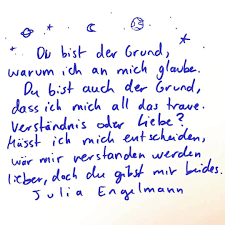 Du bist der Grund,
warum ich an mich glaube.
Du bist auch der Grund,
dass ich mich all das traue.
Verständnis oder Liebe?
Müsst ich mich entscheiden,
wär mir verstanden werden
lieber, doch du gibst mir beides.
Julia Engelmann